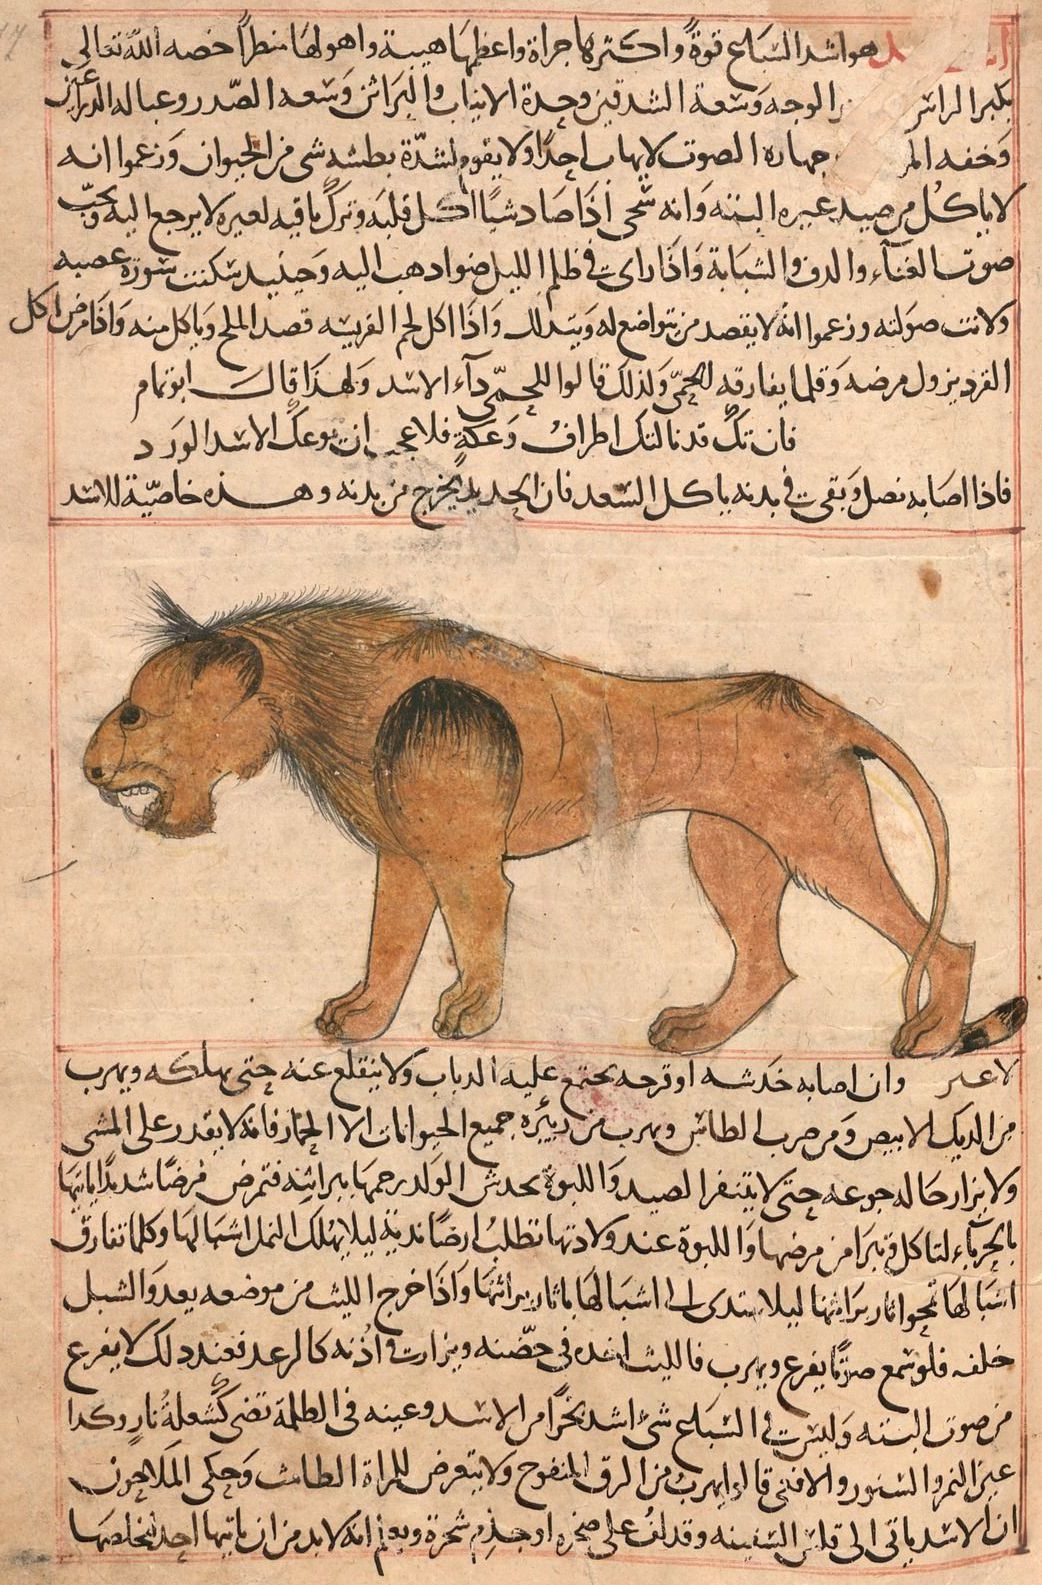 هو اشد السباع قوةً واكثرها جراة واعظمها هيبة واهولها منظراً خصه الله تعالى
بكبر الراس الوجه وسعة الشدقين وحدة الانياب والبراثن وسعه الصدر وعباله
وخفه جهاره الصوت لا يهاب احدًا ولا يقوم لشدّة بطشه شي من الحيوان وزعموا انه
لا ياكل من صيد غيره البتنه وانه سخى اذا صاد شيًا اكل قلبه وترك باقيه لغيره لا يرجع اليه ويحبّ
صوت الغنآء والدف والشبابة واذا راى فى ظلم الليل ضوا ذهب اليه وحينيد سكنت سورة غضبه
ولانت صولته وزعموا انه لا يقصد من يتواضع له ويتذلل واذا اكل لحم الفريسه قصد الملح وياكل منه واذا مرض اكل
القرد يزول مرضه وقلما يفارقه الحمّى ولذلك قالوا للحمّى دآء الاسد ولهذا قال ابو تمام
فان تكُ قد نالتك اطرافُ وعكةٍ فلا عجب ان يوعك الاسد الورد
فاذا اصابه نصل وبقى فى بدنه ياكل السعد فان الحديد يخرج من بدنه وهذه خاصيّة للاسد
لا غير وان اصابه خدشه او قرحه يجتمع عليه الدباب ولا ينقلع عنه حتى يهلكه ويهرب
من الديك الابيض ومن ضرب الطاس ويهرب من زئيره جميع الحيوانات الا الحمار فانه لا يقدر على المشى
ولا يزار حاله جوعه حتى لا يتنفر الصيد واللبوة يخدش الولد رحمها ببراثنه فتمرض مرضًا شديدًا
لتاكل فتبرا من مرضها واللبوة عند ولادتها تطلب ارضًا نديّة ليلا يهلك النمل اشبالها وكلما تفارق
اشبالها تمحوا اثار براثنها ليلا يهتدى الى اشبالها باثار براثنها واذا خرج الليث من موضعه يعدوا الشبل
خلفه فلو سمع صوتًا يفزع ويهرب فالليث اخذه فى حضنه ويزار فى اُذنه كالرعد فعند ذلك لا يفزع
من صوت البتنه وليس فى السباع شئ اشد بخرًا من الاسد وعينه فى الظلمة تضى كشعلة نارٍ وكدا
عين النمر والسنور والافعى قالوا يهرب من الزق المنفوخ ولا يتعرض للمراة الطامث وحكى الملاحون
ان الاسد ياتى الى قلس السفينه وقد لف على صخره او جذم شجرة ويعلم انه لا بد من ان ياتيها احد ليخلصها